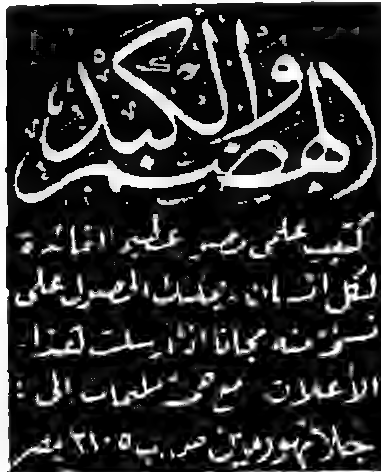 الهضم والكبد
كتيب علمى مصور عظيم الفائدة
لكل انسان . يمكنك الحصول على
نسخة منه مجانا اذا ارسلت هذا
الاعلان مع خمسة مليمات الى :
جلاهورمون ص . ب ٢١٠٥ مصر